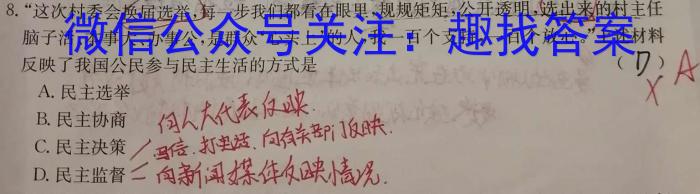 8.“这次村委会换届选举,每一步我们都看在眼里,规规矩矩,公开透明,选出来的村主任
脑子活
微信公众号关注：趣找答案
材料
反映了我国公民参与民主生活的方式是
A. 民主选举
B. 民主协商 向人大代表反映.
C. 民主决策 写信.打电话.向有关部门反映.
D. 民主监督 向新闻媒体反映情况.
A